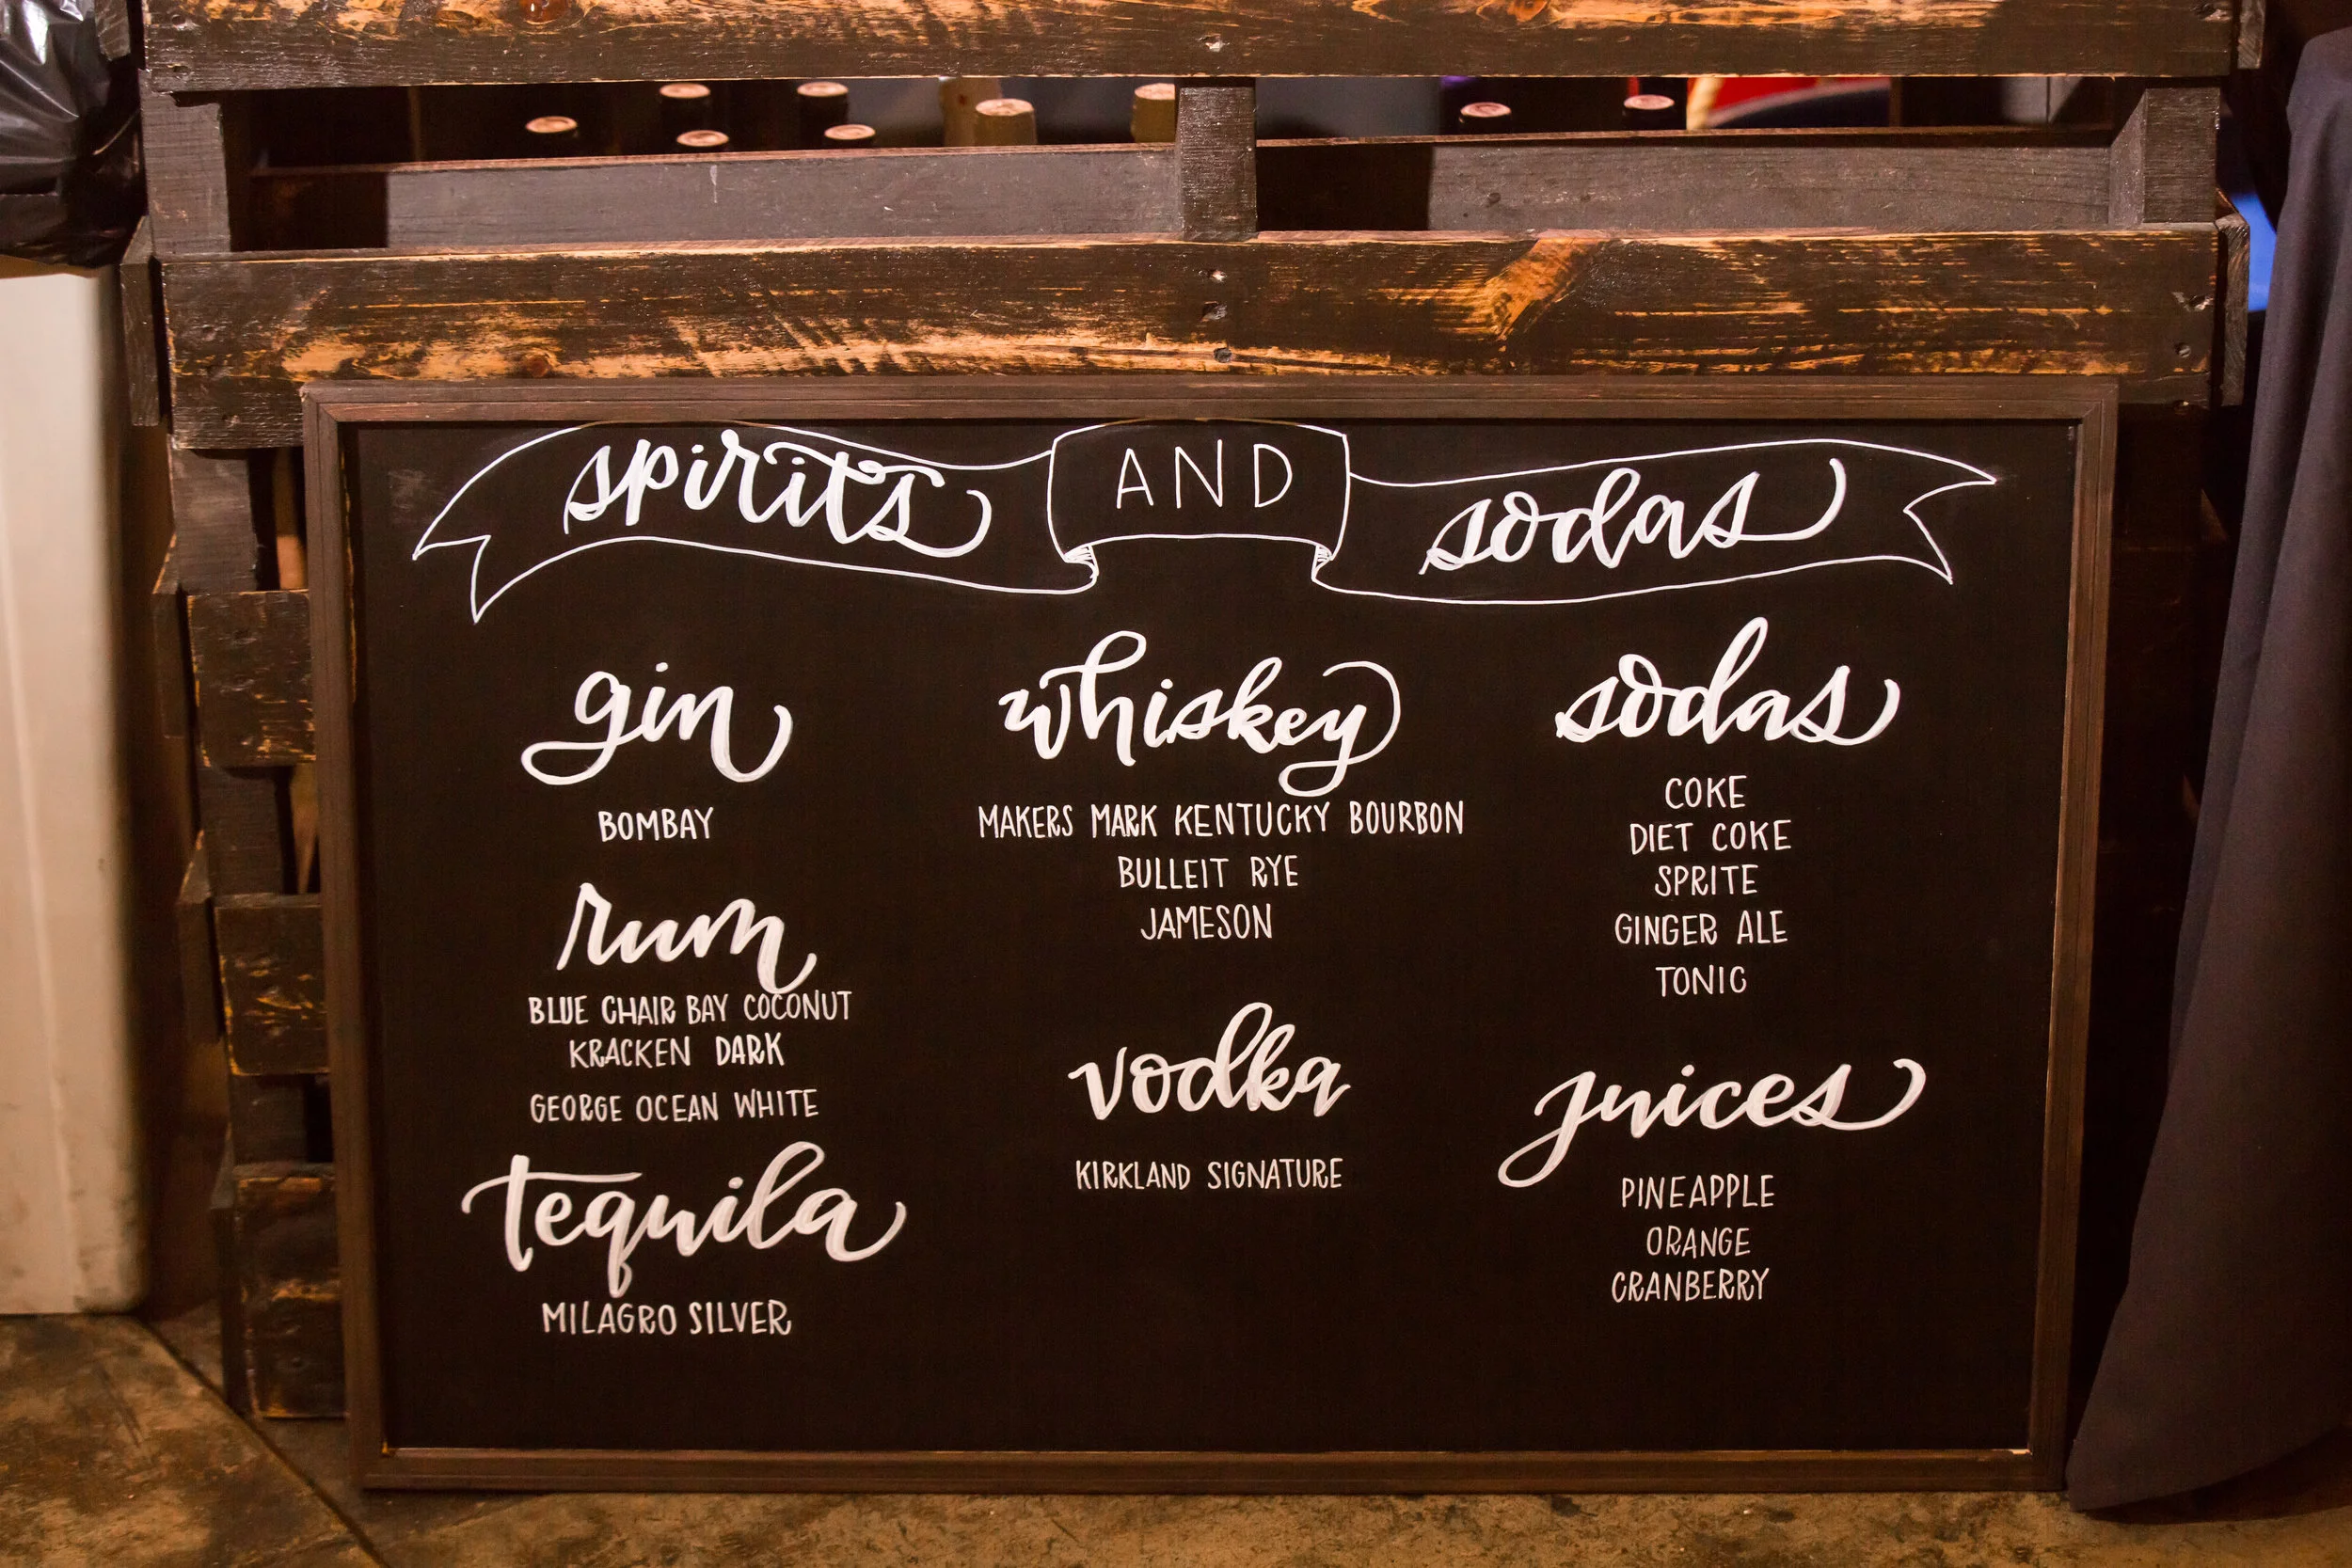 spirits AND sodas
gin
BOMBAY
rum
BLUE CHAIR BAY COCONUT
KRACKEN DARK
GEORGE OCEAN WHITE
tequila
MILAGRO SILVER
whiskey
MAKERS MARK KENTUCKY BOURBON
BULLEIT RYE
JAMESON
vodka
KIRKLAND SIGNATURE
sodas
COKE
DIET COKE
SPRITE
GINGER ALE
TONIC
juices
PINEAPPLE
ORANGE
CRANBERRY